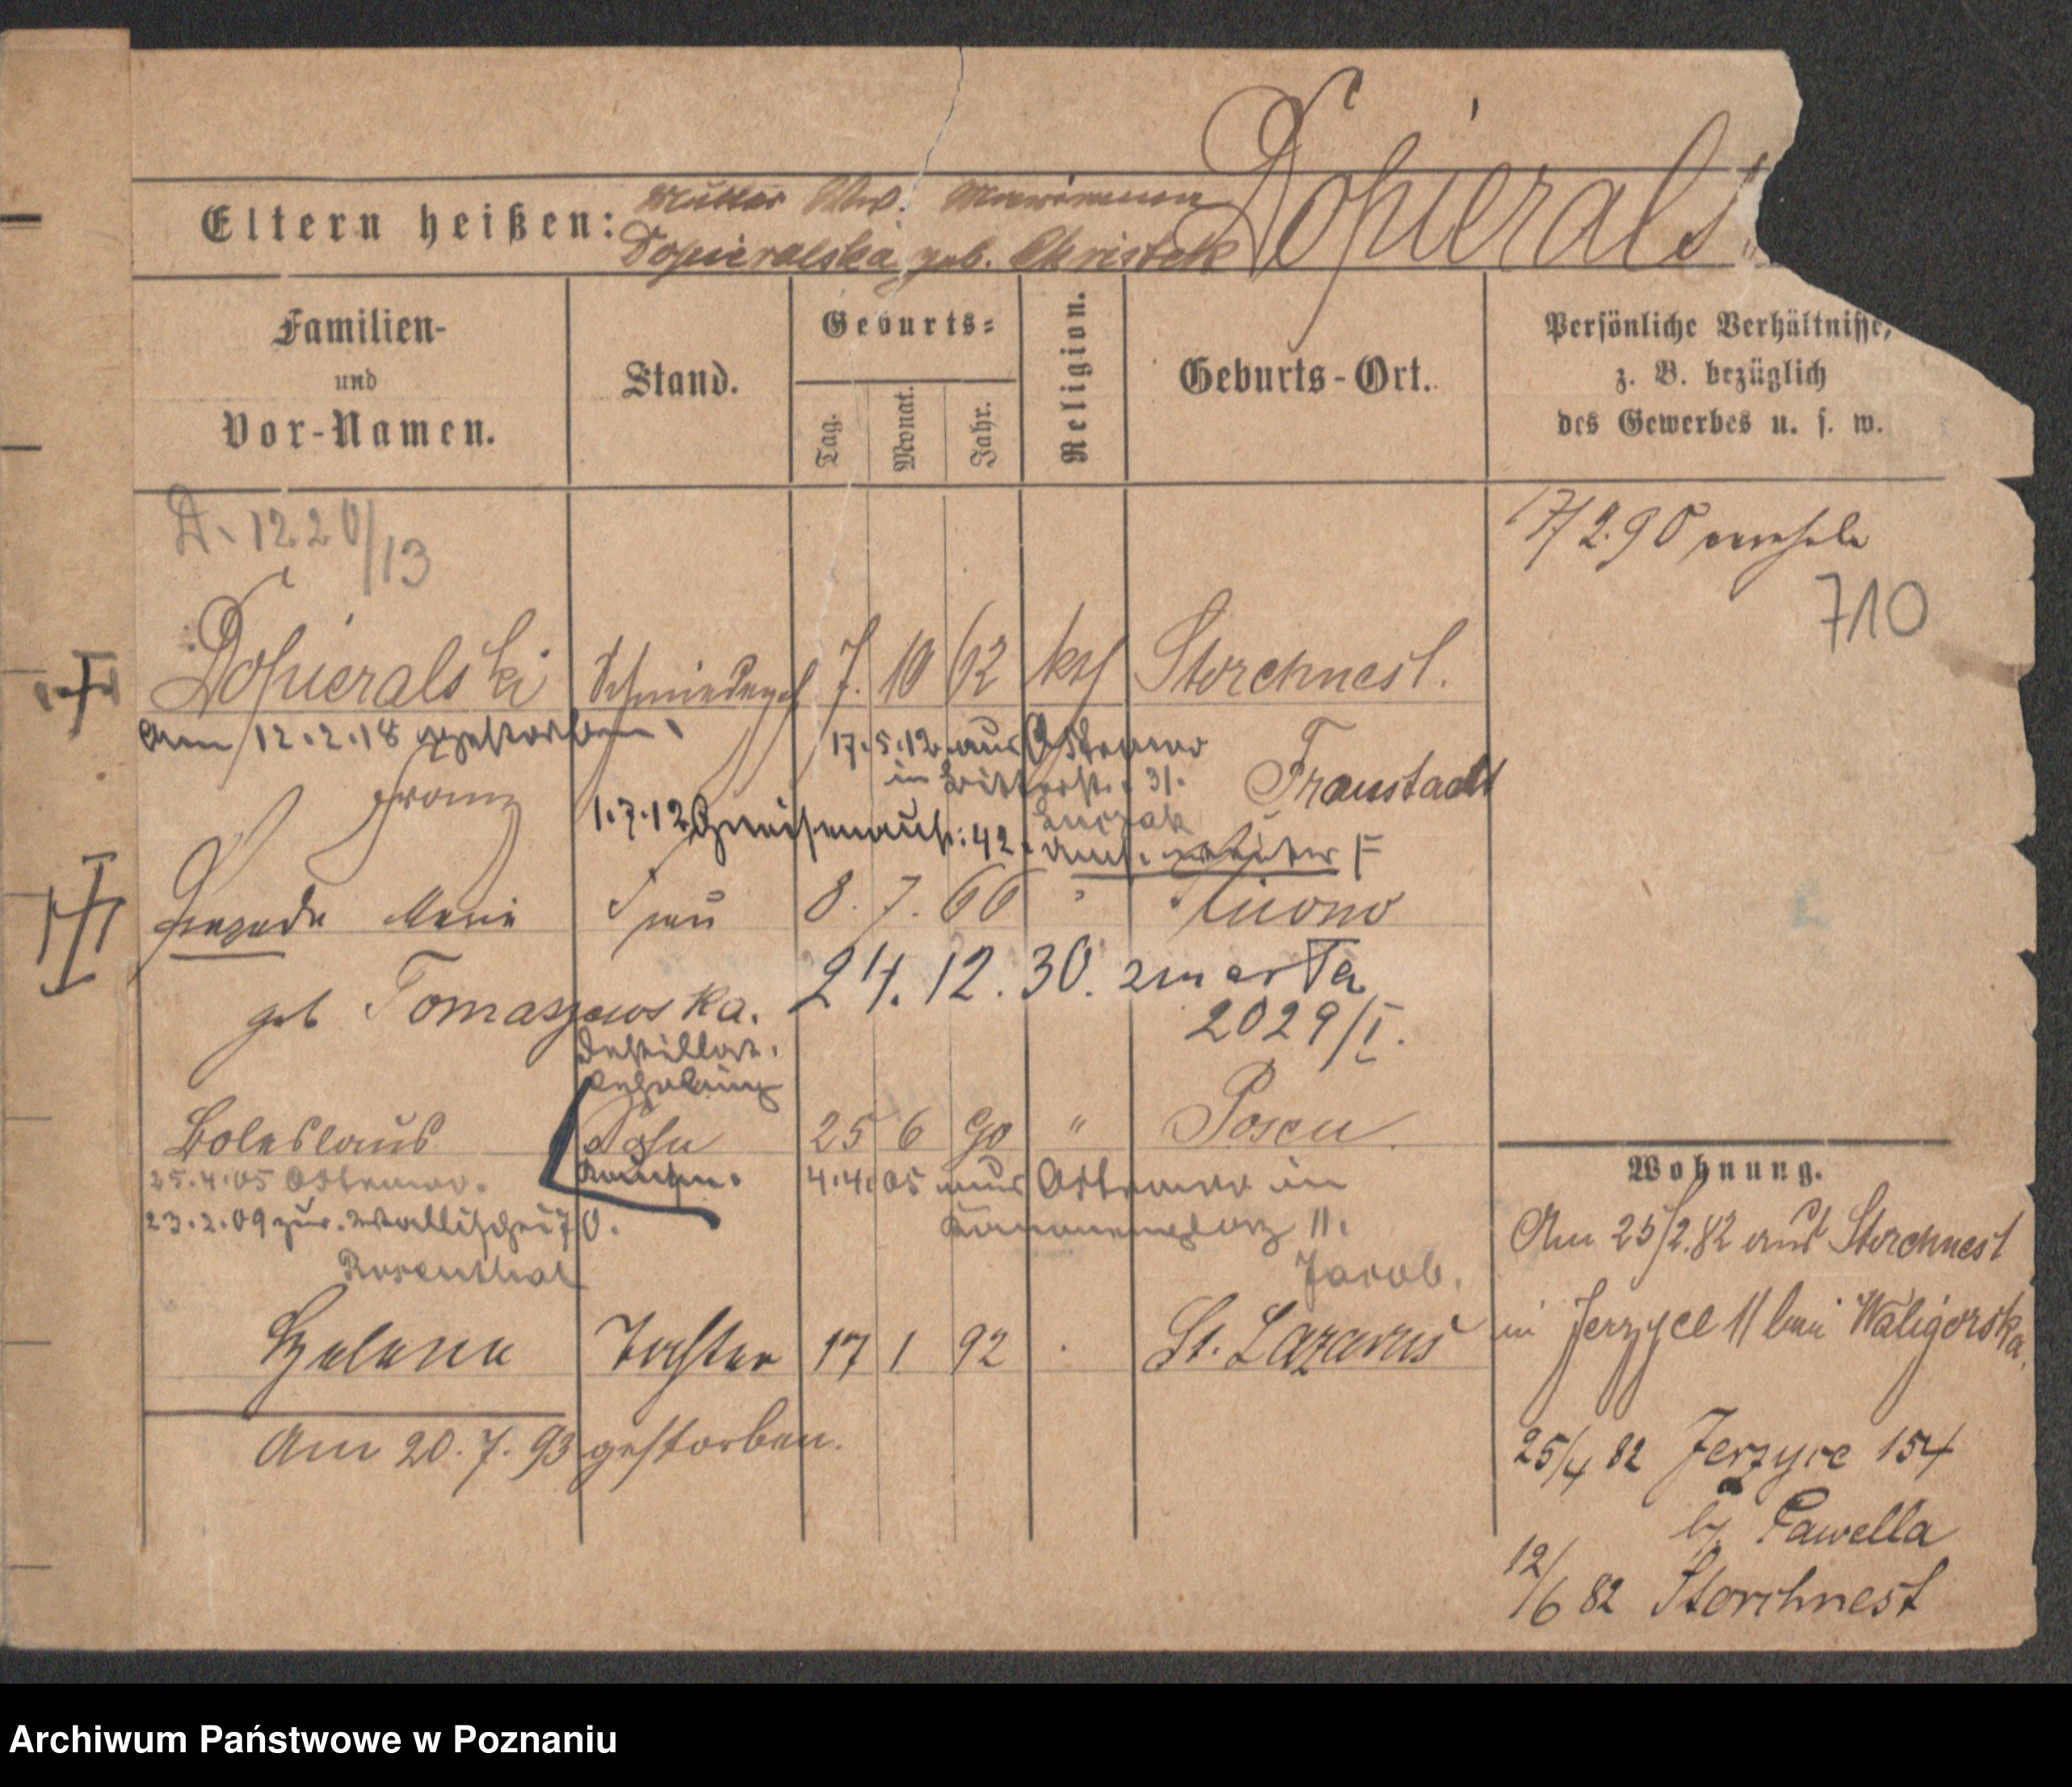 Dopierals
Eltern heißen: Mutter Wwe. Marianna
Dopieralska geb. Christek
Familien-
und
Vor-Namen.
Stand.
Geburts-
Tag. Monat. Jahr.
Religion.
Geburts-Ort.
Persönliche Verhältnisse,
z. B. bezüglich
des Gewerbes u. s. w.
D. 1220/13
17/2.90
710
Dopieralski Schmiedeges 7. 10 62 kth Storchnest.
Am 12.2.18 gestorben.
17.5.12 aus Ostrowo
in Bitterstr. 31.
Franz
Fraustadt
1.7.12 Gneisenaustr. 42.
Luczak
Marie Frau 8. 7. 66
24.12.30. zmarła
geb Tomaszewska.
2029/I.
Destillat.
Lehrling
Boleslaus Sohn 25 6 90 " Posen
25.4.05 Ostrowo.
Kaufm.
4.4.05 aus Ostrowo in
23.2.09 zur. Wallischei 70.
Kanonenplatz 11.
Rosenthal
Jacob.
Helene Tochter 17 1 92 . St. Lazarus
Am 20.7.93 gestorben.
Wohnung.
Am 25/2.82 aus Storchnest
in Jerzyce 11 bei Waligorska.
25/4 82 Jerzyce 154
b/ Pawella
12/6 82 Storchnest
Archiwum Państwowe w Poznaniu